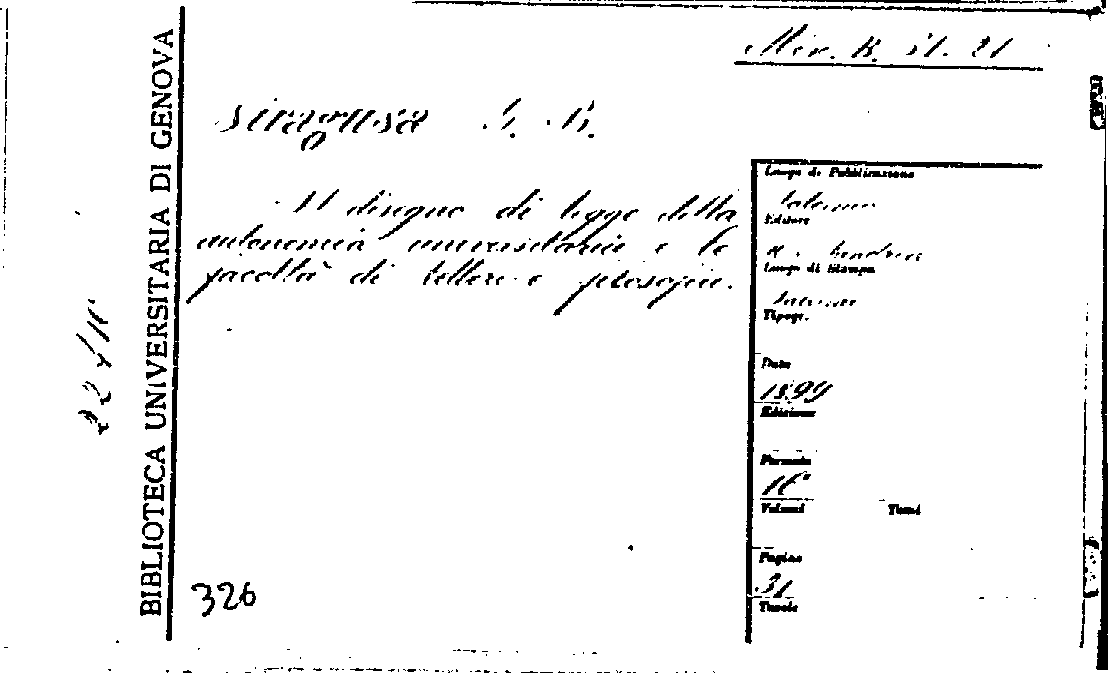 BIBLIOTECA UNIVERSITARIA DI GENOVA
Siragusa G. B.
Il disegno di legge della
autonomia universitaria e le
facoltà di lettere e filosofia.
326
Luogo di Pubblicazione
Palermo
Editore
Luogo di Stampa
Palermo
Tipogr.
Data
1899
Edizione
Formato
16°
Volumi Tomi
Pagine
31
Tavole